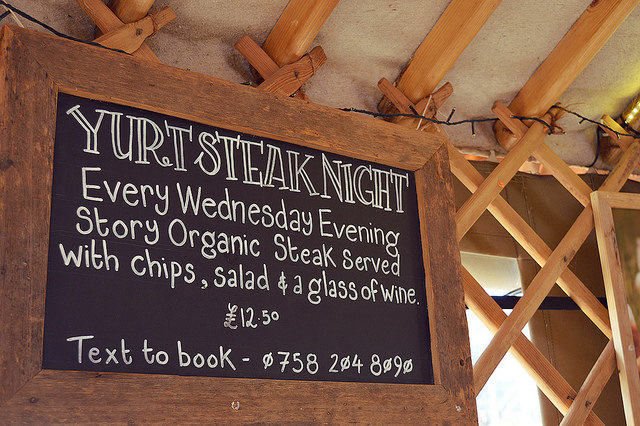 YURT STEAK NIGHT
Every Wednesday Evening
Story Organic Steak served
with chips, salad & a glass of wine.
£12.50
Text to book - 0758 204 8090